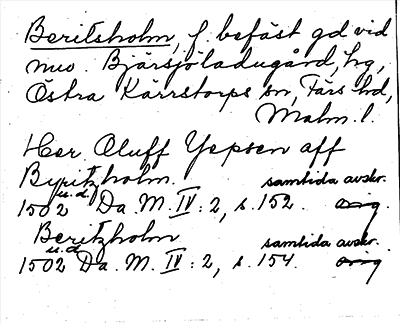 Beritsholm, f. befäst gd vid
nuv. Bjärsjöladugård, hg,
Östra Kärrstorps sn, Färs hd,
Malm. l.
Her Oluff Yepsen aff
Byritzholm. samtida avskr.
u.d.
1502 Da. M. IV: 2, s. 152. orig.
Beritzholm samtida avskr.
u.d.
1502 Da. M. IV: 2, s. 154. orig.